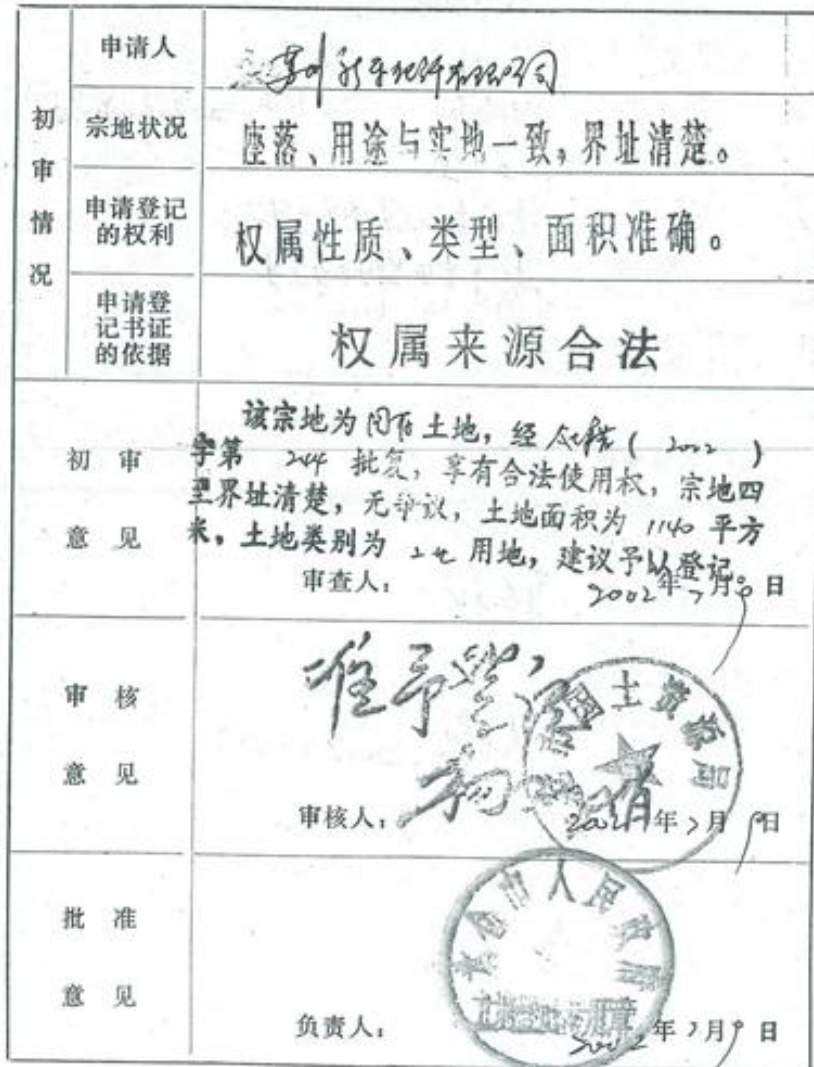 初审情况
申请人
苏州新车化纤有限公司
宗地状况
座落、用途与实地一致，界址清楚。
申请登记的权利
权属性质、类型、面积准确。
申请登记书证的依据
权属来源合法
初审意见
该宗地为国有土地，经 (2002)
字第 244 批复，享有合法使用权，宗地四
至界址清楚，无争议，土地面积为 1140 平方
米，土地类别为 用地，建议予以登记
审查人： 2002年7月 日
审核意见
准予登记
国土资源局
审核人： 2002年7月 日
批准意见
太仓市人民政府
土地登记专用章
负责人： 2002年7月 日